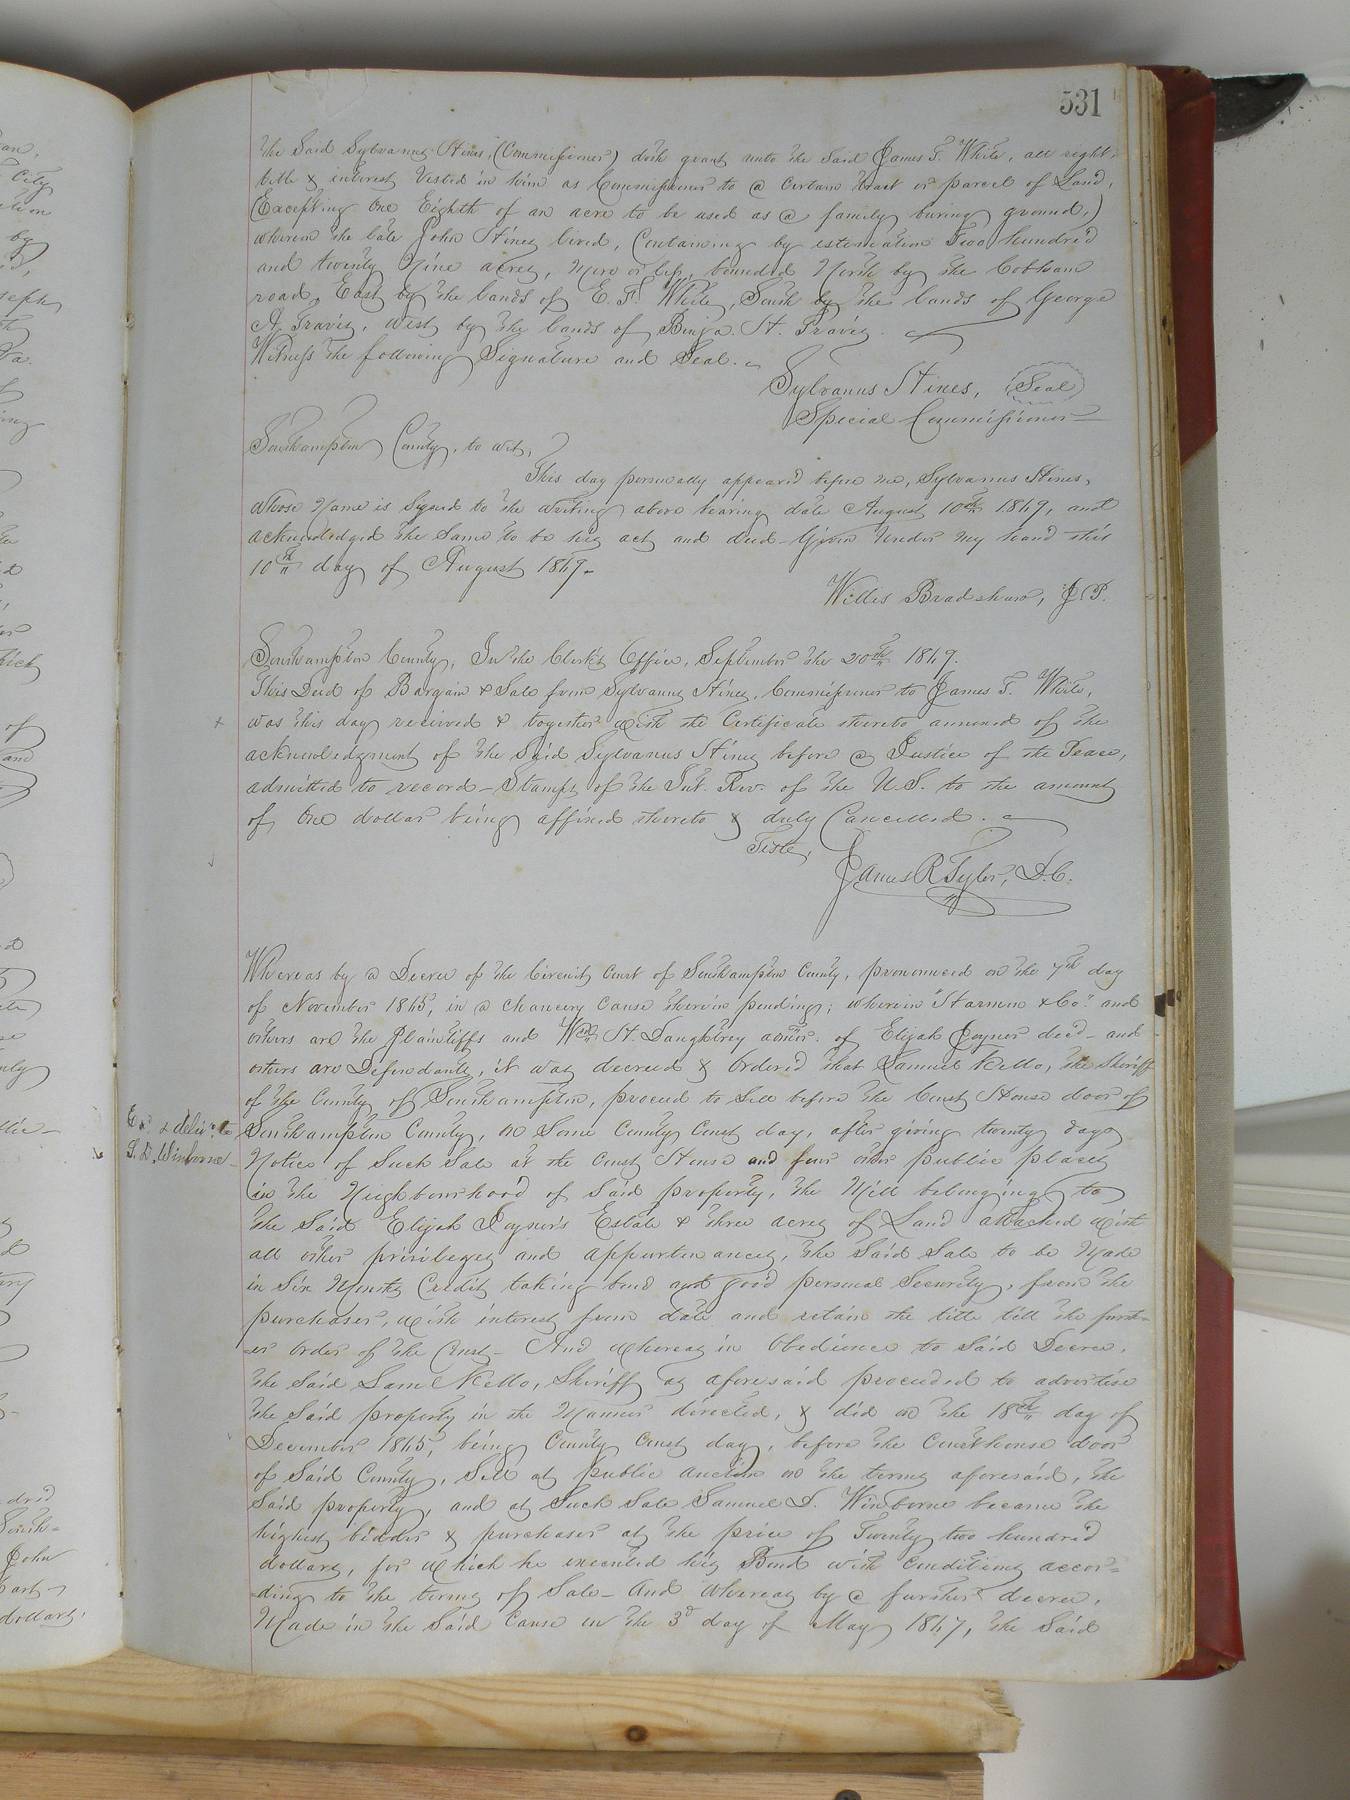 531
the Said Sylvanus Stines, (Commissioner) doth grant unto the Said James T. White, all right,
title & interest Vested in him as Commissioner to a Certain tract or parcel of Land,
(Excepting One Eighth of an acre to be used as a family buring ground,)
wherein the late John Stines lived, Containing by estemation Two hundred
and twenty Nine acres, More or less, bounded North by the Cobham
road, East by the lands of E. F. White, South by the lands of George
A. Travis, West by the lands of Binja. H. Travis.
Witness the following Signature and Seal.
Sylvanus Stines, Seal
Special Commissioner
Southampton County, to wit,
This day personally appeared before me, Sylvanus Stines,
whose Name is Signed to the writing above bearing date August 10th 1867, and
acknowledged the Same to be his act and deed - Given Under My hand this
10th day of August 1867-
Willis Bradshaw, J.P.
Southampton County, In the Clerk's Office, September the 20th 1867.
This Deed of Bargain & Sale from Sylvanus Stines, Commissioner to James T. White,
was this day received & together with the Certificate thereto annexed of the
acknowledgment of the Said Sylvanus Stines before a Justice of the Peace,
admitted to record - Stamps of the Int. Rev. of the U.S. to the amount
of One dollar being affixed thereto & duly Cancelled.
Teste,
James R Tyler, D.C.
Whereas by a Decree of the Circuit Court of Southampton County, pronounced on the 7th day
of November 1865, in a Chancery Cause therein pending; wherein "Starmen & Co." and
others are the Plaintiffs and Wm H. Daughtrey admr. of Elijah Joyner decd - and
others are Defendants, it was decreed & Ordered that Samuel Kello, the Sheriff
of the County of Southampton, proceed to Sell before the Court House door of
Exd & delivd to
S. D. Winborne -
Southampton County, on Some County Court day, after giving twenty days
Notice of Such Sale at the Court House and four other public places
in the Neighbourhood of Said property, the Mill belonging to
the Said Elijah Joyner's Estate & three acres of Land attached with
all other privileges and appurtenances, the Said Sale to be Made
in Six Months Credit taking bond and good personal Security, from the
purchaser, with interest from date and retain the title till the furth-
-er Order of the Court - And Whereas in Obedience to Said Decree,
the Said Saml Kello, Sheriff as aforesaid proceeded to advertise
the Said property in the Manner directed, & did on the 18th day of
December 1865, being County Court day, before the Courthouse door
of Said County, Sell at public auction on the terms aforesaid, the
Said property, and at Such Sale Samuel D. Winborne became the
highest bidder & purchaser at the price of Twenty two hundred
dollars, for which he executed his Bond with Conditions accor=
=ding to the terms of Sale - And Whereas by a further decree,
Made in the Said Cause on the 3d day of May 1867, the Said